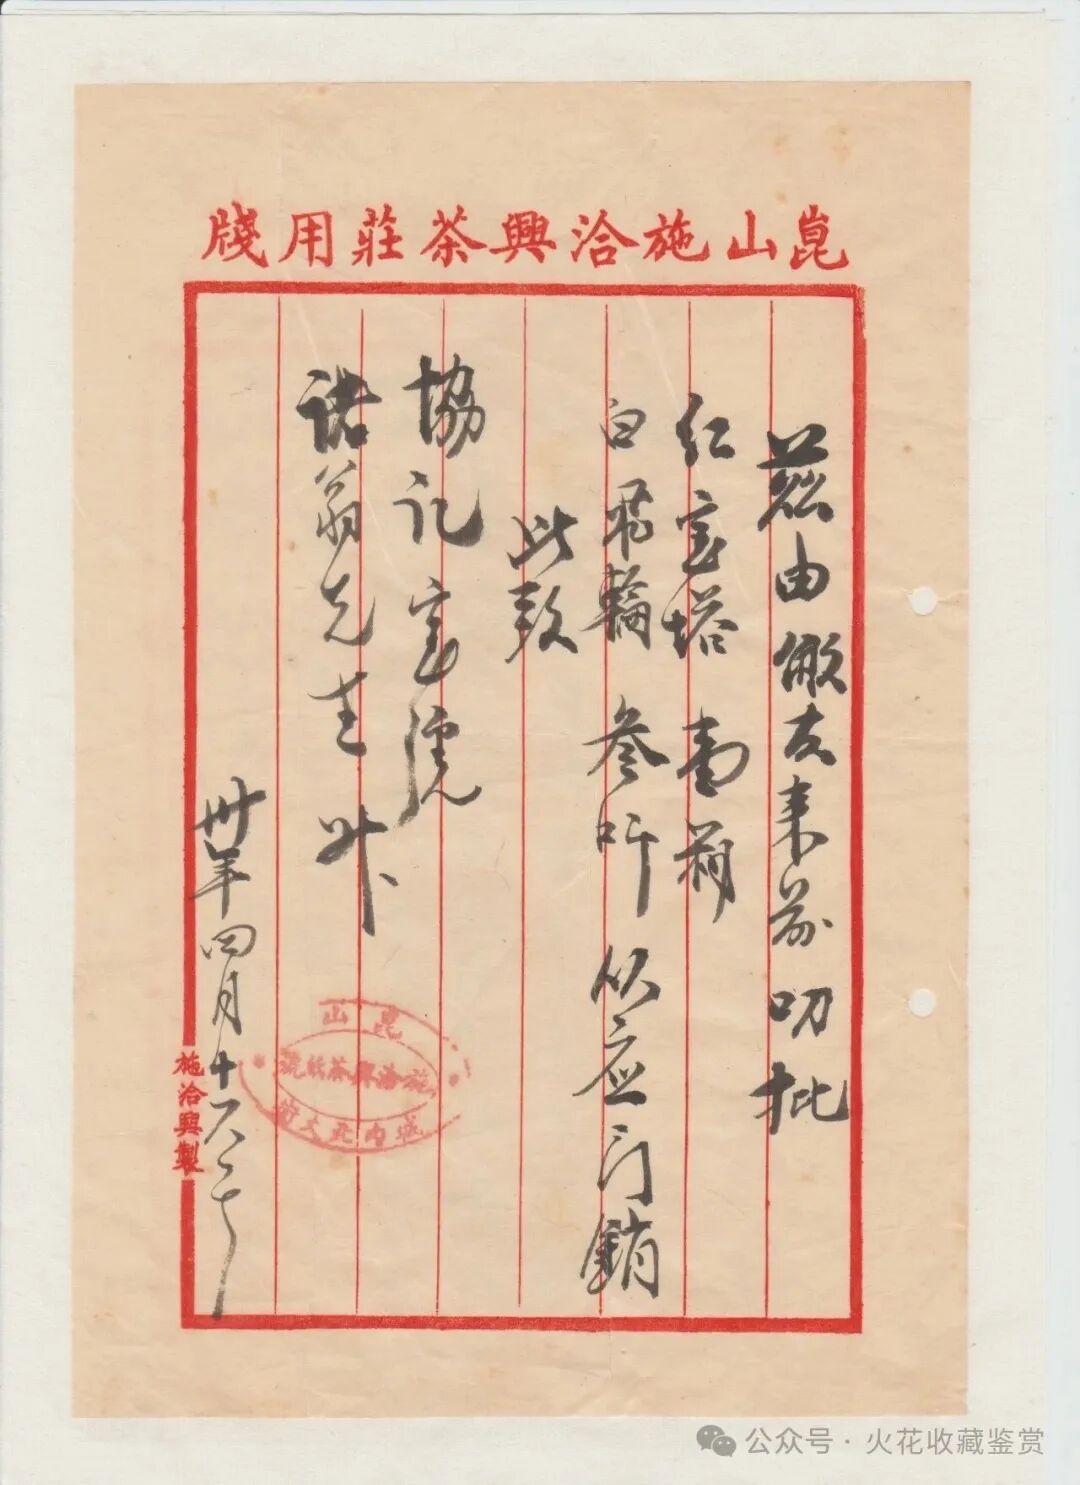 崑山施洽興茶莊用牋
茲由敝友來前叨批
紅寶塔 壹箱
白飛輪 叄听 以应门銷
此致
協記宝號
诸翁先生 卅
卅年四月十六日
施洽興製
崑山
施洽興茶紙號
城内北大街
公众号·火花收藏鉴赏